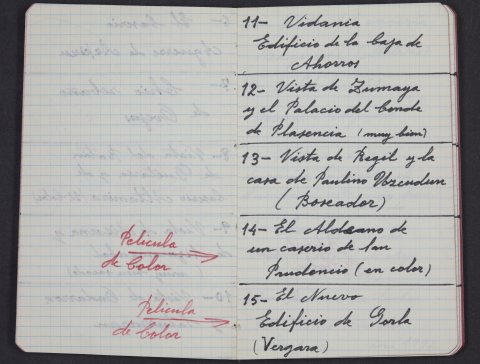 Pelicula
de Color
Pelicula
de Color
11- Vidania
Edificio de la Caja de
Ahorros
12- Vista de Zumaya
y el Palacio del Conde
de Plasencia (muy bien)
13- Vista de Regil y la
casa de Paulino Uzcudun
(Boxeador)
14- El Aldeano de
un caserio de San
Prudencio (en color)
15- El Nuevo
Edificio de Gorla
(Vergara)